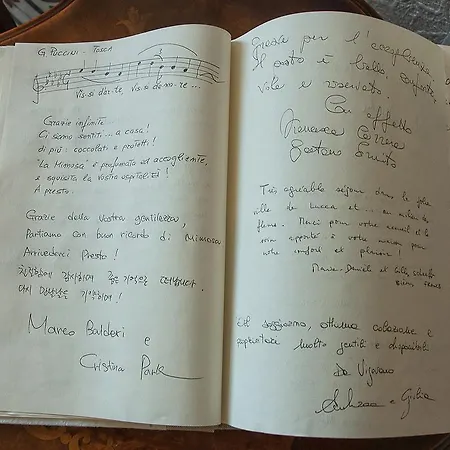 G PUCCINI - TOSCA
Vis-si d'ar-te, vis-si d'a-mo-re...
Grazie infinite...
Ci siamo sentiti... a casa!
di più: coccolati e protetti!
"La Mimosa" è profumata ed accogliente,
e squisita la vostra ospitalità!
A presto.
Grazie dalla Vostra gentilezza,
Partiamo con buon ricordo di Mimosa
Arrivederci Presto!
친절함에 감사하며 좋은 기억으로 떠납니다.
다시 만날날을 기약하며!
Marco Balderi e
Cristina Park
Grazie per l'accoglienza.
Il posto è bello, confort
vole e riservato.
Con affetto
Francesca
Gaetano
Très agréable séjour dans la jolie
ville de Lucca et ... au milieu des
fleurs. Merci pour votre accueil et le
soin apporté à votre maison pour
notre confort et plaisir!
Marie-Danièle et
soggiorno, ottima colazione e
proprietari molto gentili e disponibili
Da Vigevano
e Giulia